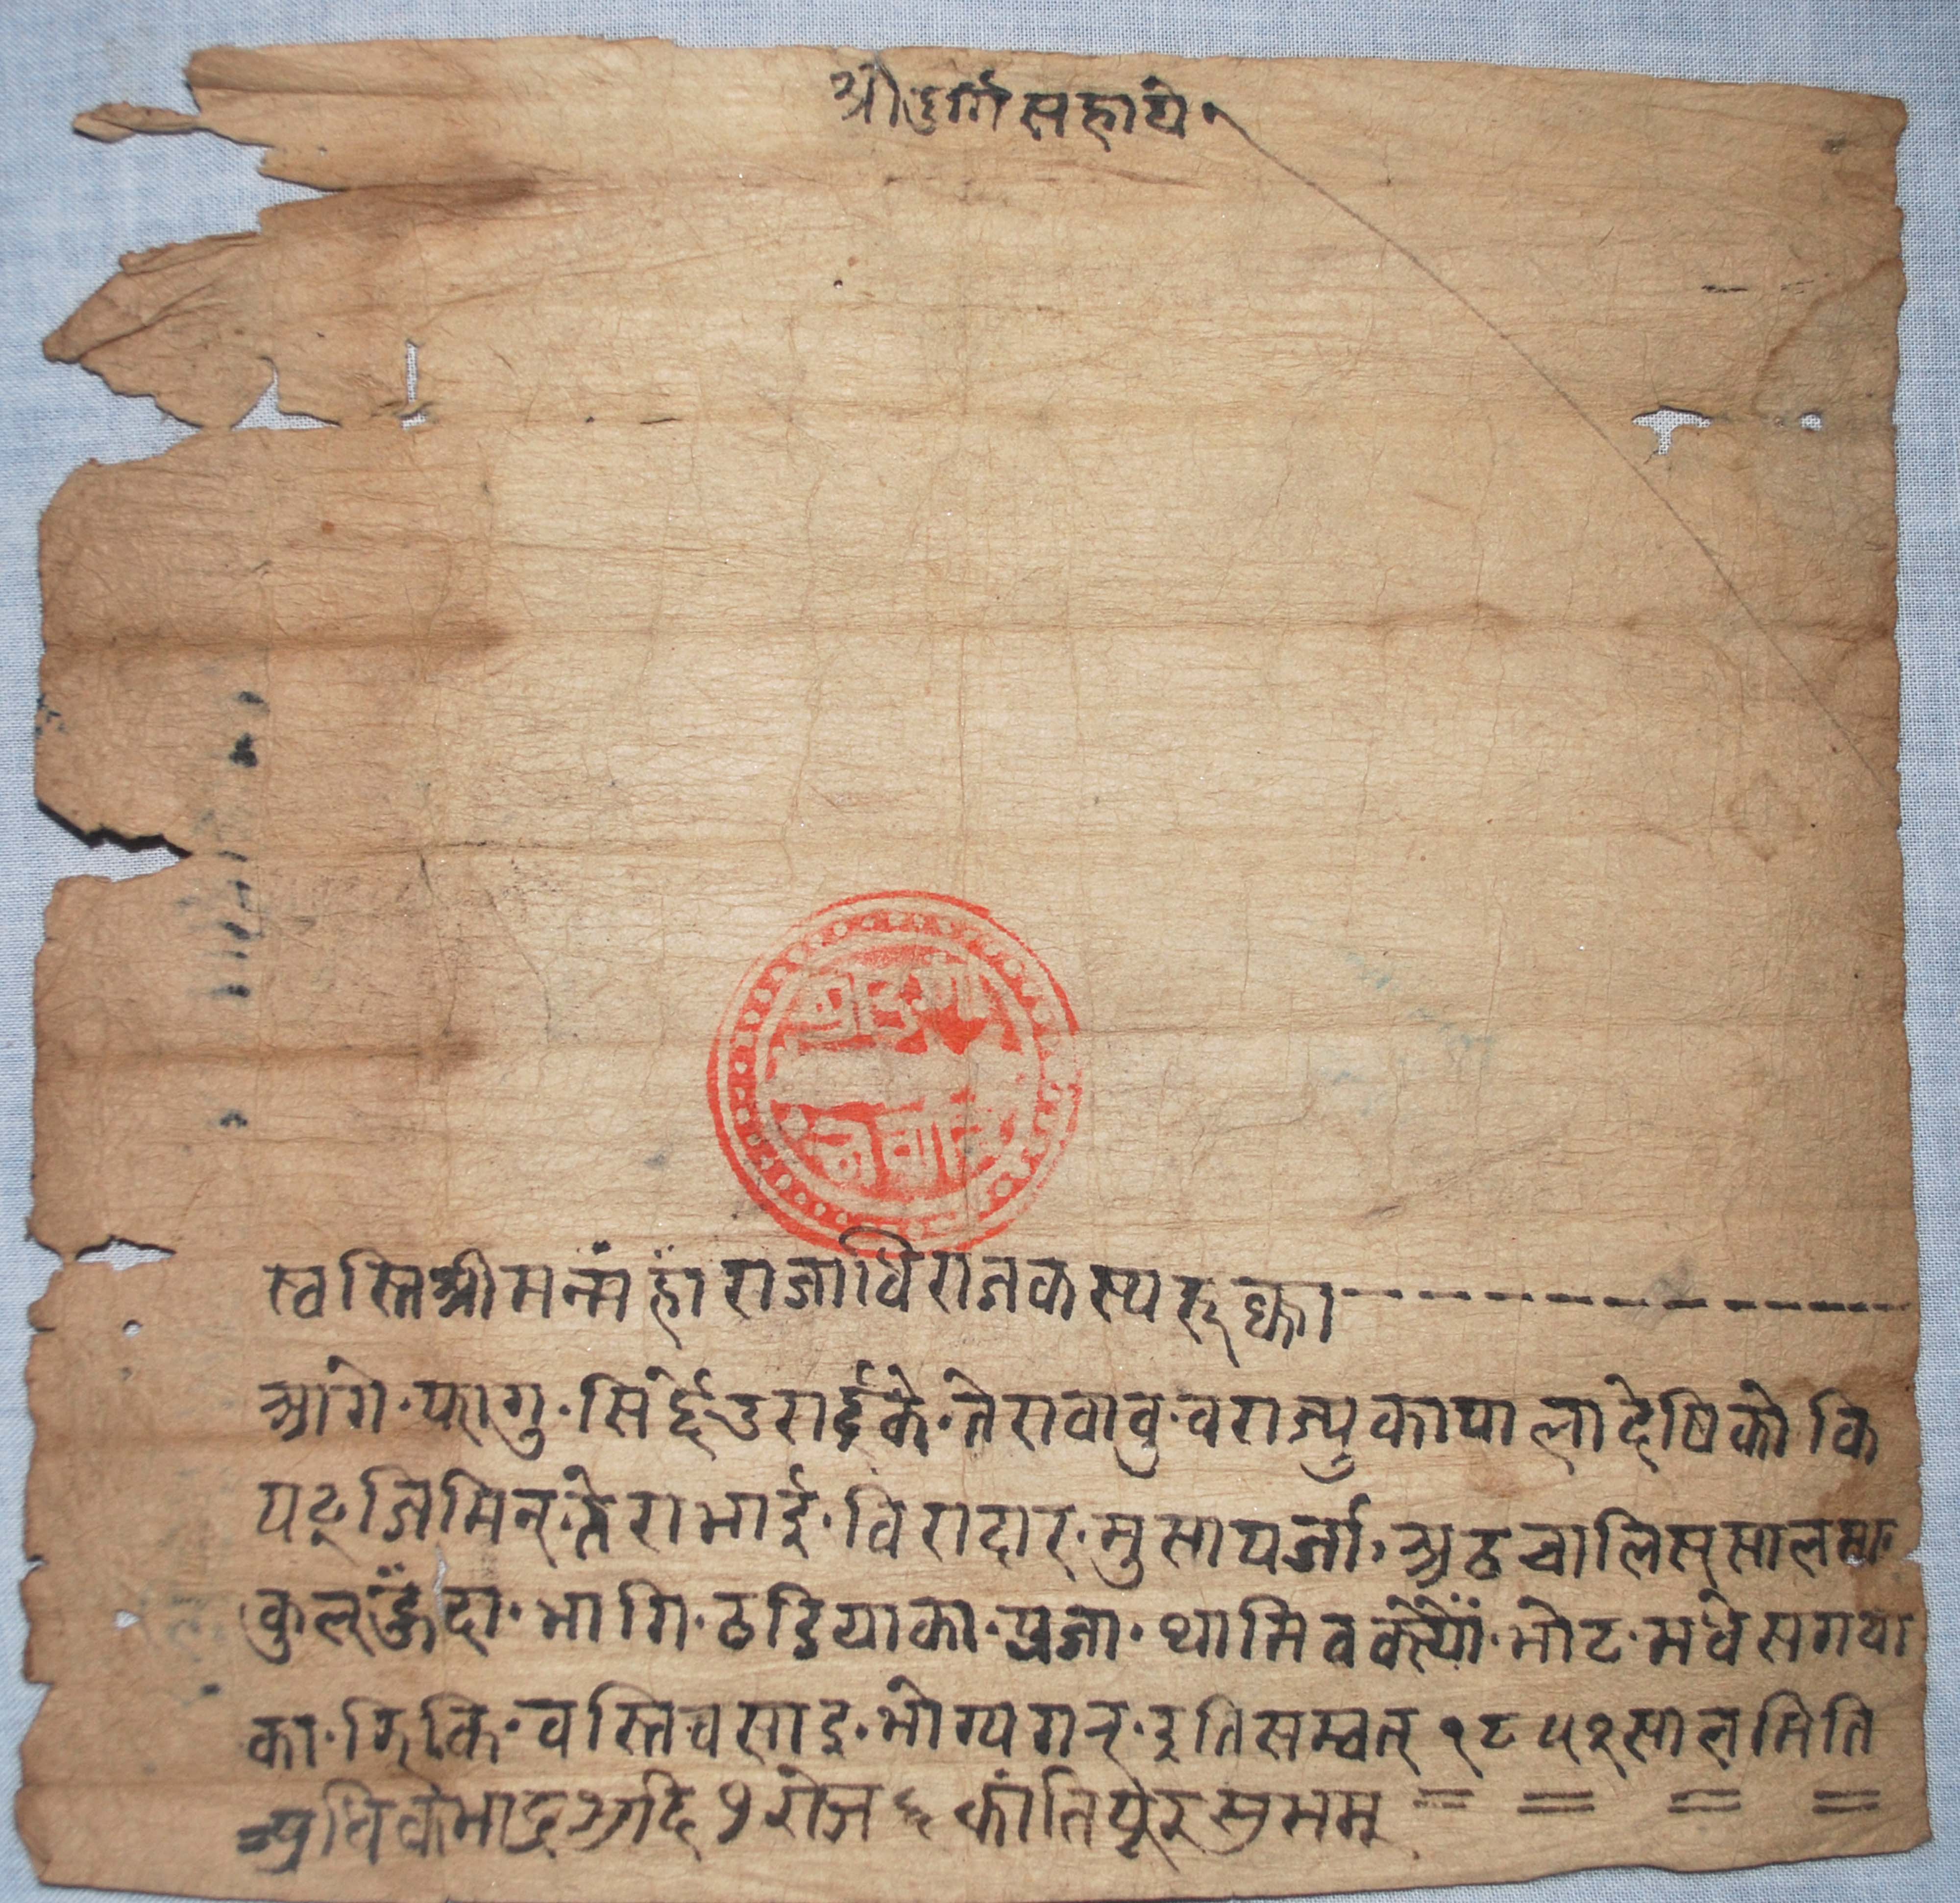 श्रीदुर्गासहाये
श्रीदुर्गा
भवानि
स्वस्तिश्रीमन्मंहाराजाधिराजकस्यरूक्का
आगे॰फागु॰सिंर्हेउराईके॰तेरावावु॰वराज्युकापालादेषिकोकि
पट्जिमिन्॰तेराभाई॰विरादार॰मुसापर्जा॰अठचालिस्सालमा
कुलहुँदा॰भागि॰ठडियाका॰प्रजा॰थामिव भोट॰मधेसगया
का॰झिकि॰वस्तिवसाइ॰भोग्यगर॰इतिसम्वत् १८५१सालमिति
अधिकभाद्रशुदि१रोज६कांतिपूरसुभमम्